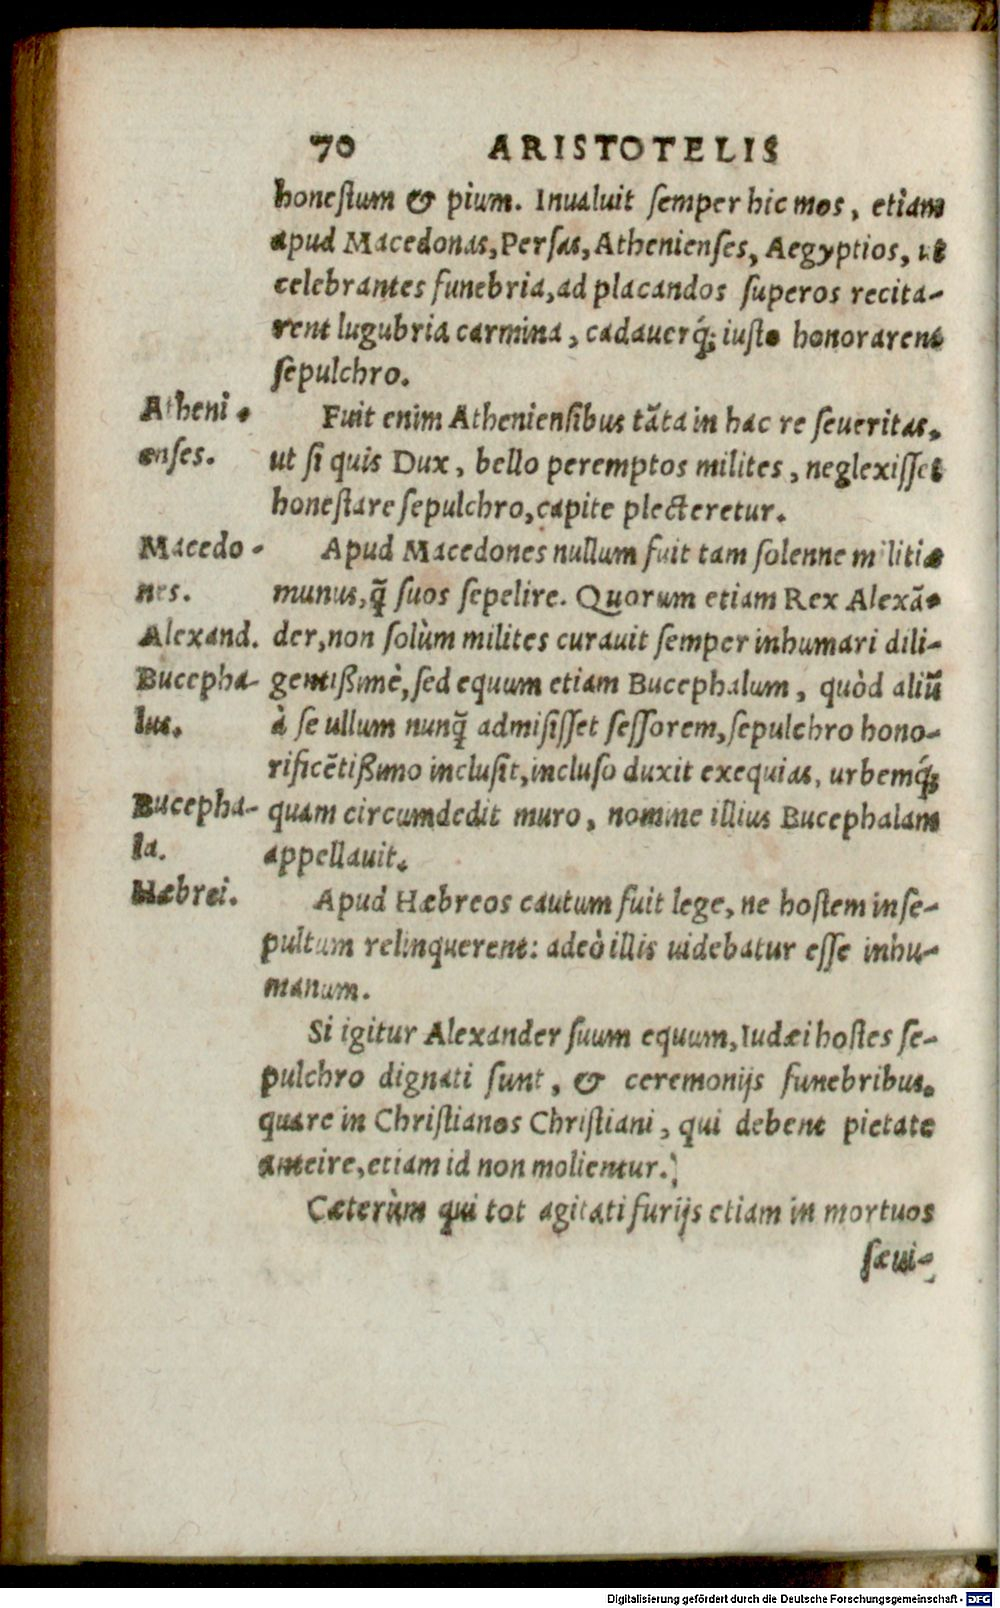 70 ARISTOTELIS
honeſtum & pium. Inualuit ſemper hic mos, etiam
apud Macedonas, Perſas, Athenienſes, Aegyptios, ut
celebrantes funebria, ad placandos ſuperos recita-
rent lugubria carmina, cadauerq́; iuſto honorarent
ſepulchro.
Atheni-
enſes.
Fuit enim Athenienſibus tãta in hac re ſeueritas,
ut ſi quis Dux, bello peremptos milites, neglexiſſet
honeſtare ſepulchro, capite plecteretur.
Macedo-
nes.
Alexand.
Bucepha-
lus.
Apud Macedones nullum fuit tam ſolenne militiæ
munus, q̃ ſuos ſepelire. Quorum etiam Rex Alexã-
der, non ſolùm milites curauit ſemper inhumari dili-
gentißimè, ſed equum etiam Bucephalum, quòd aliũ
à ſe ullum nunq̃ admiſiſſet ſeſſorem, ſepulchro hono-
rificẽtißimo incluſit, incluſo duxit exequias, urbemq́;
Bucepha-
la.
quam circumdedit muro, nomine illius Bucephalam
appellauit.
Hæbrei.
Apud Hæbreos cautum fuit lege, ne hoſtem inſe-
pultum relinquerent: adeò illis uidebatur eſſe inhu-
manum.
Si igitur Alexander ſuum equum, Iudæi hoſtes ſe-
pulchro dignati ſunt, & ceremonijs funebribus.
quare in Chriſtianos Chriſtiani, qui debent pietate
anteire, etiam id non molientur.
Cæterùm qui tot agitati furijs etiam in mortuos
ſæui-
Digitalisierung gefördert durch die Deutsche Forschungsgemeinschaft - DFG